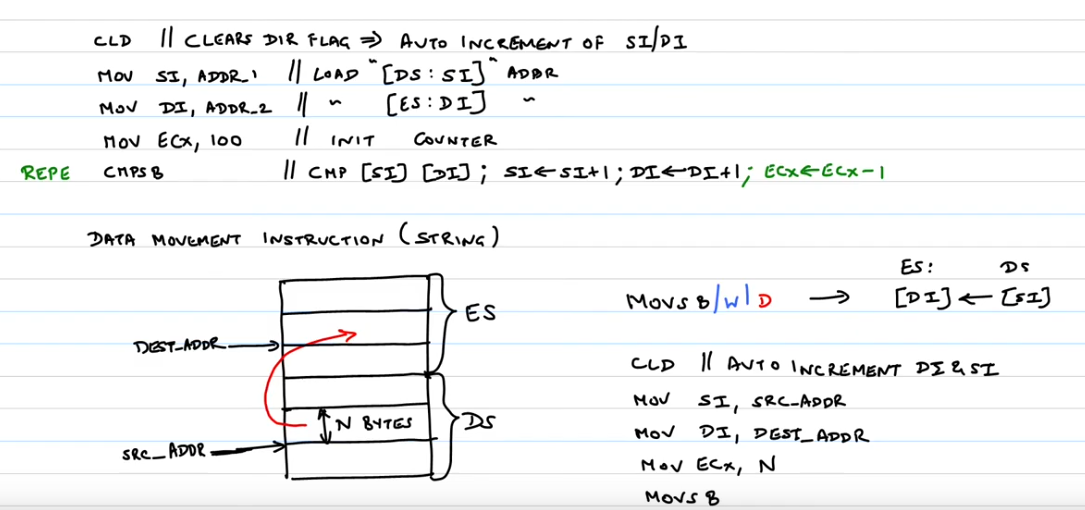 CLD // CLEARS DIR FLAG ⇒ AUTO INCREMENT OF SI/DI
MOV SI, ADDR_1 // LOAD "[DS:SI]" ADDR
MOV DI, ADDR_2 // " [ES:DI] "
MOV ECX, 100 // INIT COUNTER
REPE CMPSB // CMP [SI] [DI]; SI←SI+1; DI←DI+1; ECX←ECX-1
DATA MOVEMENT INSTRUCTION (STRING)
ES
DEST_ADDR
N BYTES
DS
SRC_ADDR
ES: DS
MOVSB/W/D → [DI]←[SI]
CLD // AUTO INCREMENT DI & SI
MOV SI, SRC_ADDR
MOV DI, DEST_ADDR
MOV ECX, N
MOVSB